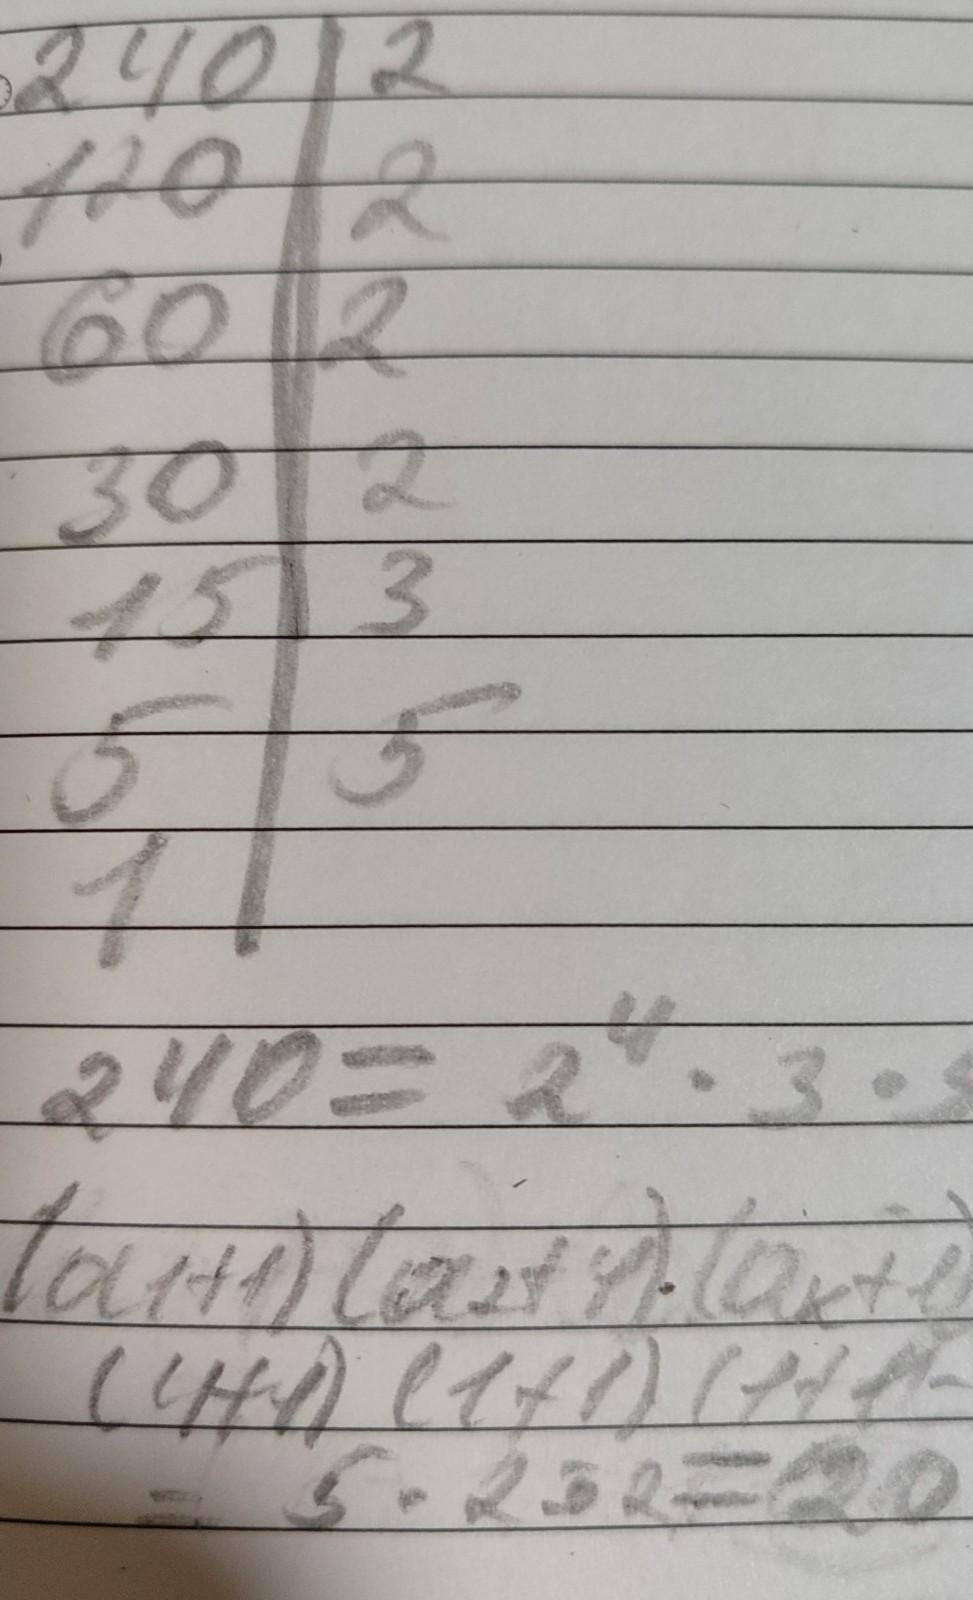 240 | 2
120 | 2
60 | 2
30 | 2
15 | 3
5 | 5
1 |
240 = 2⁴ · 3 ·
(a1+1) (a2+1) · (ax+1)
(4+1) (1+1) (1+1
= 5 · 2 = 2 = 20